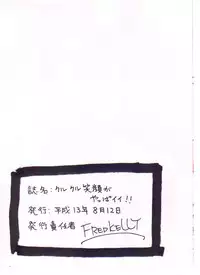 誌名:クルクル笑顔が
やっぱイイ!!
発行:平成13年8月12日
発行責任者 FRED KELLY